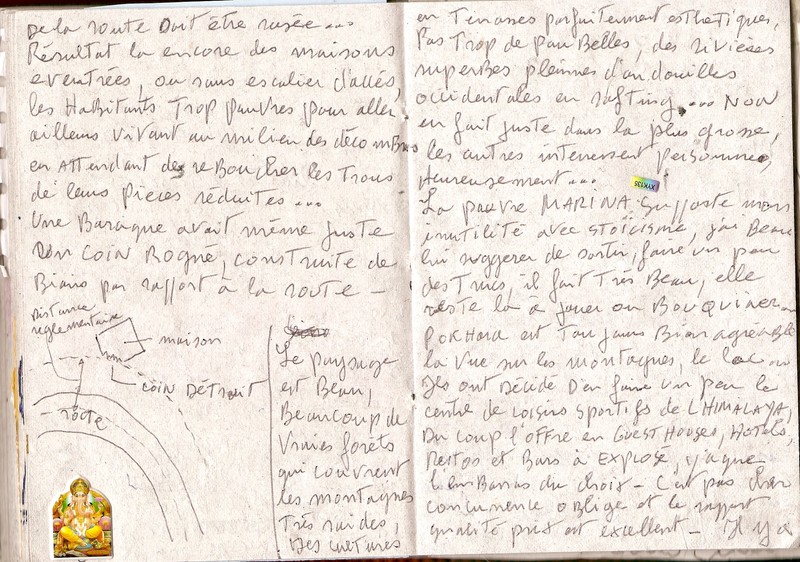 De la route Doit être rasée...
Résultat la encore des maisons
eventrées, ou sans escalier d'accés,
les Habitants Trop pauvres pour aller
ailleurs vivant au milieu des décombres
en Attendant de reBoucher les Trous
de leurs pieces réduites...
Une Baraque avait même juste
un COIN ROGNÉ, construite de
Biais par rapport à la route -
Distance
reglementaire
maison
COIN DÉTRUIT
route
Le paysage
est Beau,
Beaucoup de
Vraies forêts
qui couvrent
les montagnes
Très raides,
Des cultures
en Terrasses parfaitement esthetiques,
Pas Trop de pou Belles, des rivières
superbes pleines d'andouilles
occidentales en rafting.... NON
en fait juste dans la plus grosse,
les autres interessent personne,
Heureusement...
XYK135
La pauvre MARINA supporte mon
inutilité avec stoïcisme, j'ai Beau
lui suggerer de sortir, faire un peu
des Trucs, il fait Très Beau, elle
reste là à jouer ou BOUQUINER
POKHARA est Toujours Bien agréable
la Vue sur les montagnes, le lac
Ils ont Décidé D'en faire un peu le
centre de loisirs sportifs de L'HIMALAYA,
Du coup l'offre en GUEST Houses, Hotels,
Restos et Bars à EXPLOSÉ, y'a que
l'emBarras du choix - C'est pas cher
concurrence oblige et le rapport
qualité prix est excellent - Il y a